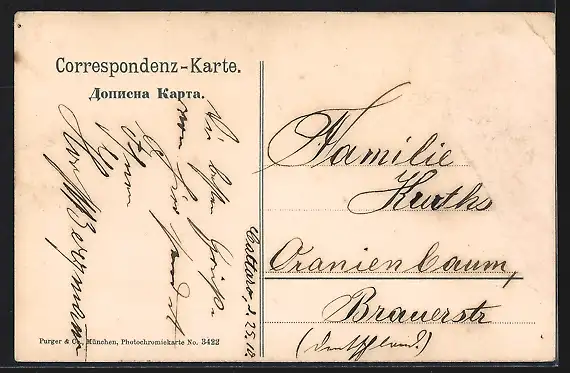 Correspondenz-Karte.
Дописна Карта.
Die besten Grüße
von hier sendet
Ihnen
Bergmann
Cattaro, d. 25.12
Familie
Kurths
Oranienbaum,
Brauerstr
(Deutschland.)
Purger & Co., München, Photochromiekarte No. 3422